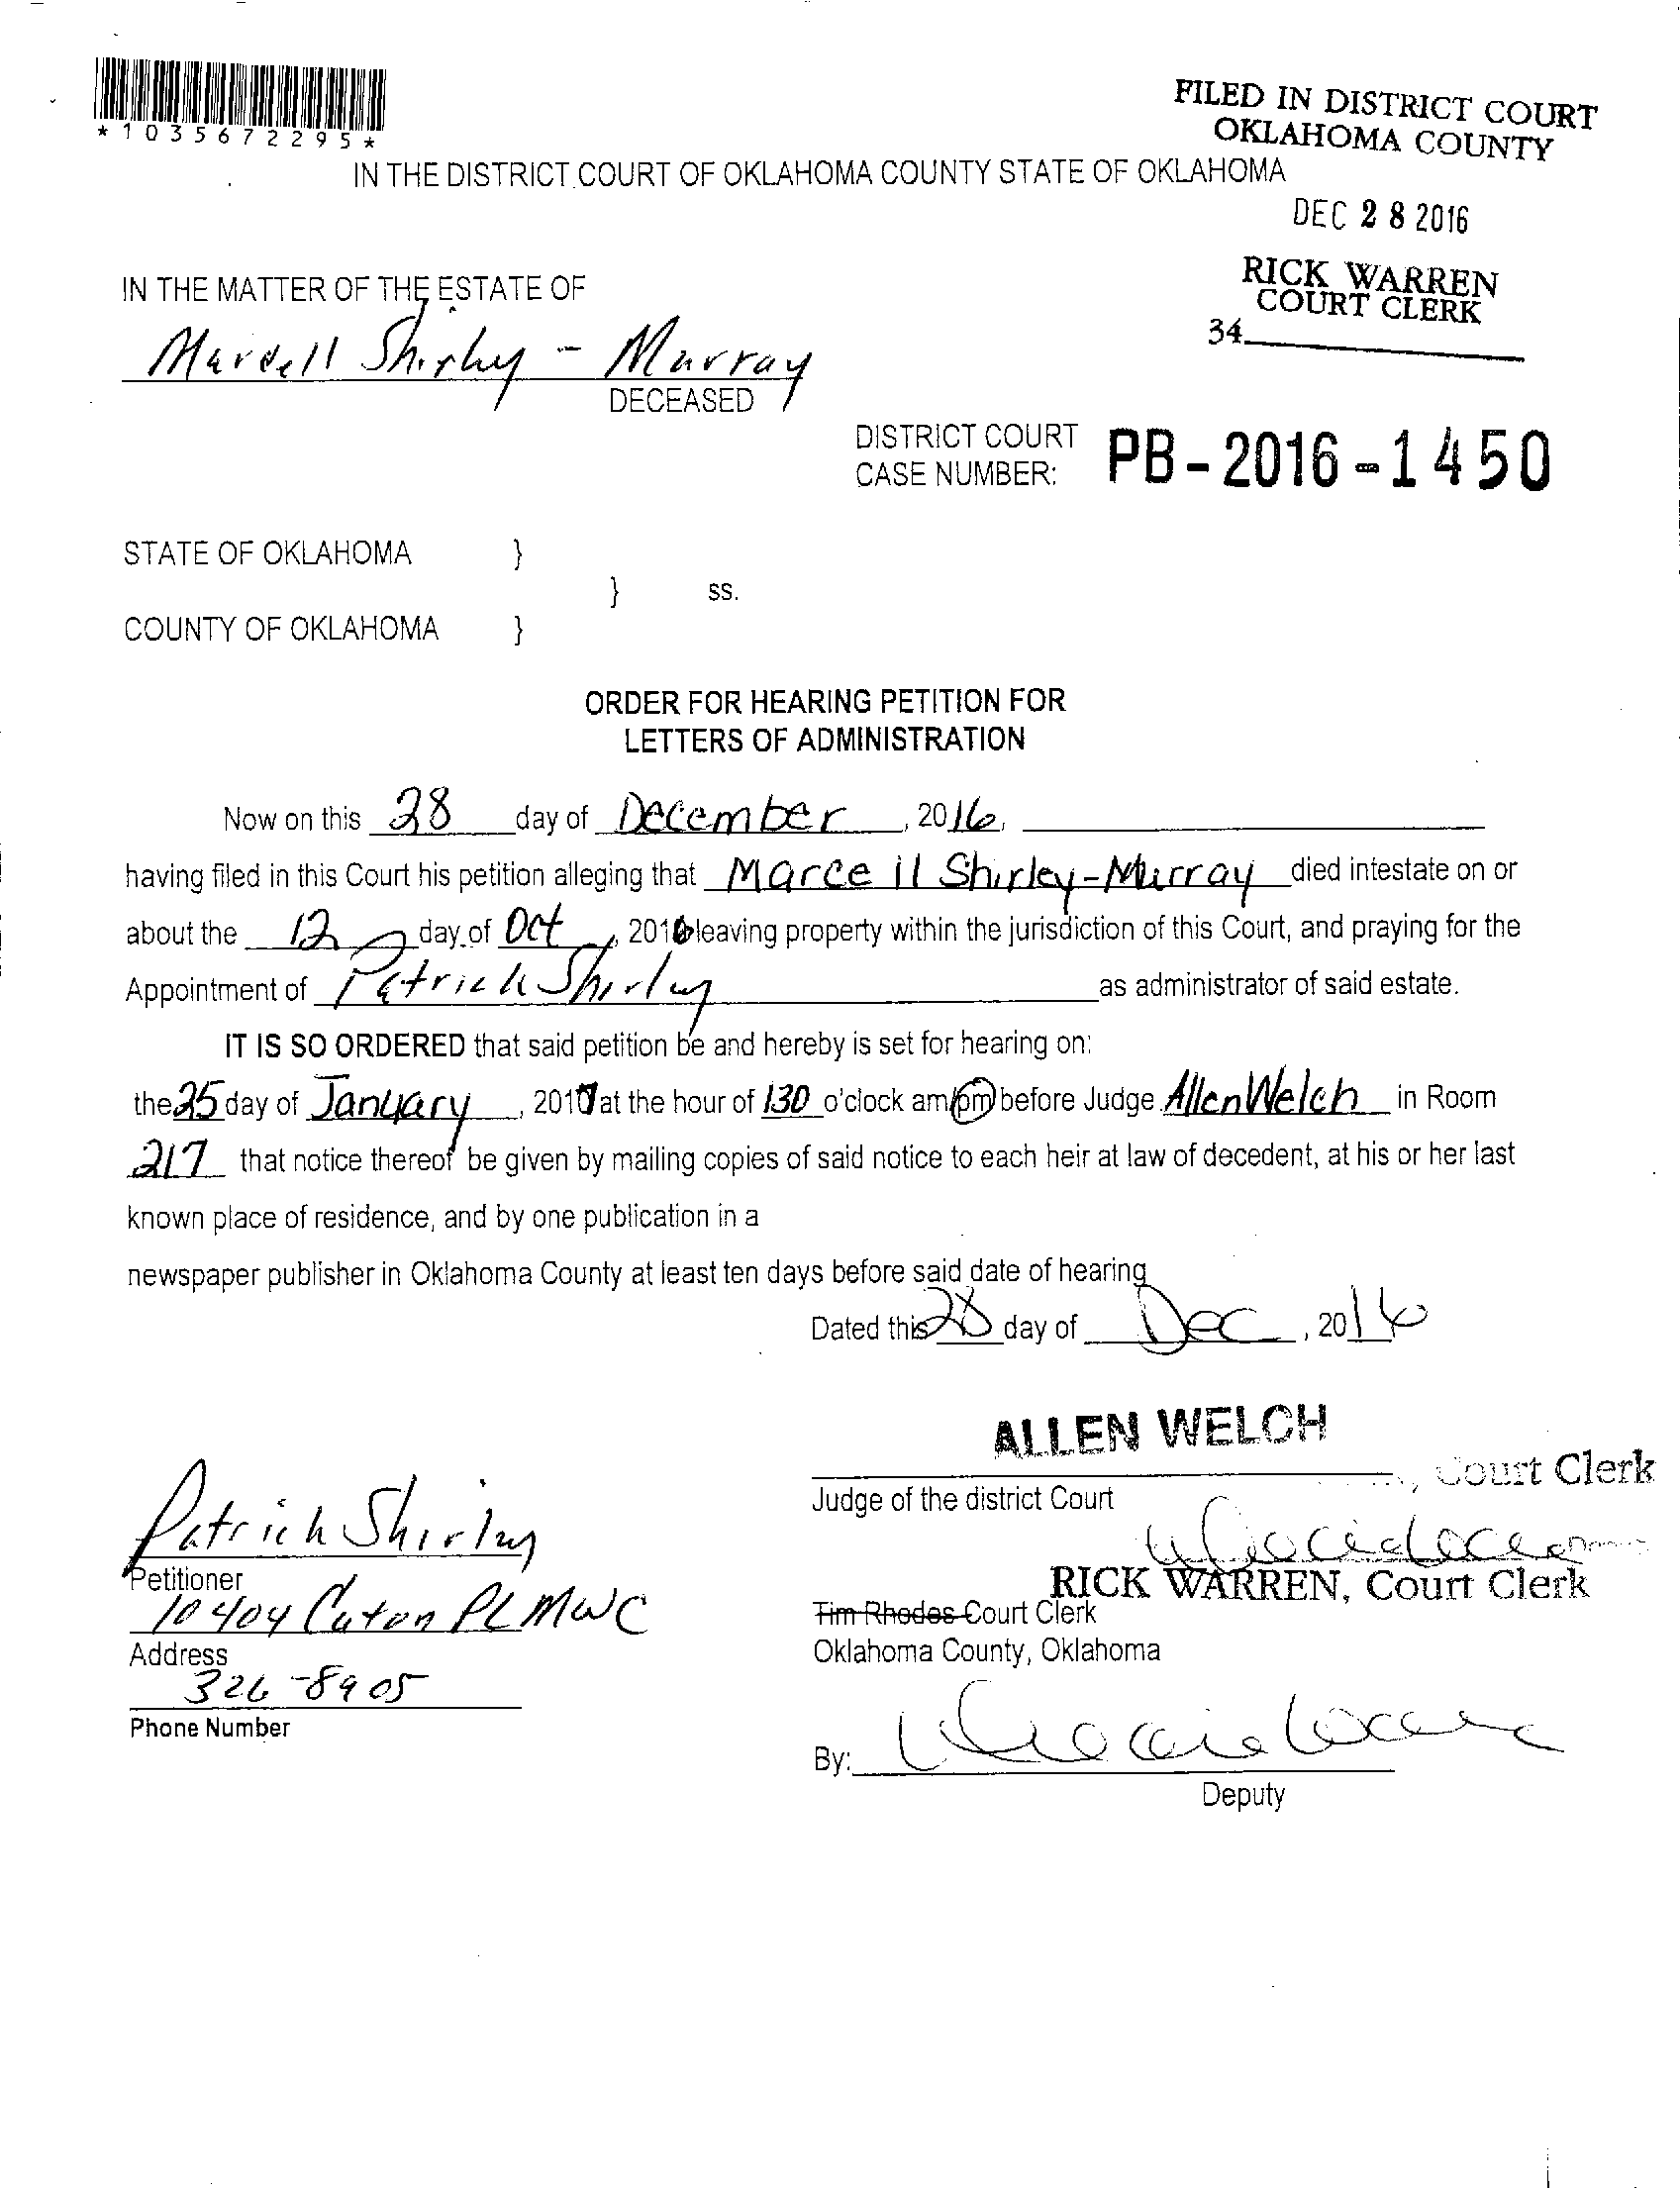 *1035672295*
FILED IN DISTRICT COURT
OKLAHOMA COUNTY
IN THE DISTRICT COURT OF OKLAHOMA COUNTY STATE OF OKLAHOMA
DEC 28 2016
RICK WARREN
COURT CLERK
34
IN THE MATTER OF THE ESTATE OF
Marcell Shirley - Murray
DECEASED
DISTRICT COURT
CASE NUMBER: PB-2016-1450
STATE OF OKLAHOMA }
} ss.
COUNTY OF OKLAHOMA }
ORDER FOR HEARING PETITION FOR
LETTERS OF ADMINISTRATION
Now on this 28 day of December, 2016,
having filed in this Court his petition alleging that Marcell Shirley-Murray died intestate on or
about the 12 day of Oct, 2016 leaving property within the jurisdiction of this Court, and praying for the
Appointment of Patrick Shirley as administrator of said estate.
IT IS SO ORDERED that said petition be and hereby is set for hearing on:
the 25 day of January, 2017 at the hour of 130 o'clock am/pm before Judge Allen Welch in Room
217 that notice thereof be given by mailing copies of said notice to each heir at law of decedent, at his or her last
known place of residence, and by one publication in a
newspaper publisher in Oklahoma County at least ten days before said date of hearing
Dated this 28 day of Dec, 2016
ALLEN WELCH
Judge of the district Court
Court Clerk
Patrick Shirley
Petitioner
10404 Caton PL MWC
Address
326-8905
Phone Number
RICK WARREN, Court Clerk
Tim Rhodes Court Clerk
Oklahoma County, Oklahoma
By:
Deputy